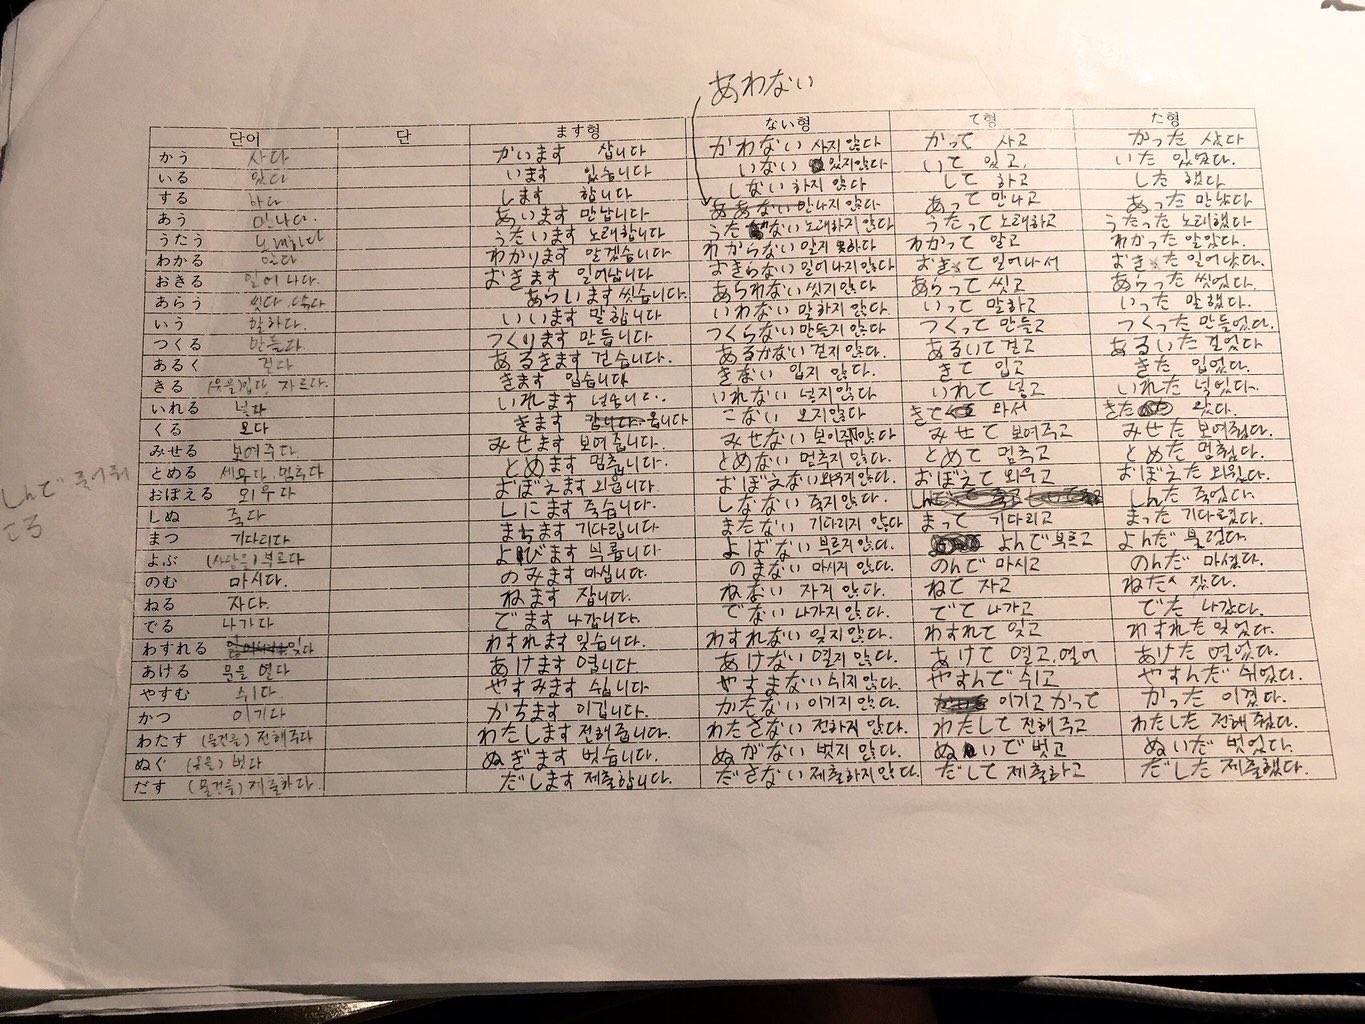 あわない
단어 단 ます형 ない형 て형 た형
かう 사다 かいます 삽니다 かわない 사지 않다 かって 사고 かった 샀다
いる 있다 います 있습니다 いない 있지않다 いて 있고, いた 있었다.
する 하다 します 합니다 しない 하지 않다 して 하고 した 했다
あう 만나다. あいます 만납니다 ああない 만나지 않다 あって 만나고 あった 만났다
うたう 노래하다 うたいます 노래합니다 うた ない 노래하지 않다 うたって 노래하고 うたった 노래했다
わかる 알다 わかります 알겠습니다 わからない 알지 못하다 わかって 알고 わかった 알았다.
おきる 일어나다. おきます 일어납니다 おきらない 일어나지 않다 おきて 일어나서 おきた 일어났다.
あらう 씻다 あらいます 씻습니다. あられない 씻지 않다. あらって 씻고 あらった 씻었다.
いう 말하다. いいます 말합니다 いわない 말하지 않다. いって 말하고 いった 말했다.
つくる 만들다. つくります 만듭니다 つくらない 만들지 않다. つくって 만들고 つくった 만들었다.
あるく 걷다 あるきます 걷습니다. あるかない 걷지 않다. あるいて 걷고 あるいた 걸었다
きる (옷을)입다, 자르다. きます 입습니다 きない 입지 않다. きて 입고 きた 입었다.
いれる 넣다 いれます 넣습니다. いれない 넣지않다 いれて 넣고 いれた 넣었다.
くる 오다 きます 갑니다. 옵니다 こない 오지않다 きて 와서 きた 왔다.
みせる 보여주다. みせます 보여줍니다. みせない 보이주지않다 みせて 보여주고 みせた 보여줬다.
とめる 세우다, 멈추다 とめます 멈춥니다. とめない 멈추지 않다. とめて 멈추고 とめた 멈췄다.
しんで 죽어줘
おぼえる 외우다 おぼえます 외웁니다. おぼえない 외우지 않다. おぼえて 외우고 おぼえた 외웠다.
しぬ 죽다 しにます 죽습니다. しなない 죽지 않다. しんだ 죽었다.
まつ 기다리다 まちます 기다립니다 またない 기다리지 않다 まって 기다리고 まった 기다렸다.
よぶ (사람을)부르다 よびます 부릅니다 よばない 부르지 않다. よんで 부르고 よんだ 불렀다.
のむ 마시다. のみます 마십니다. のまない 마시지 않다. のんで 마시고 のんだ 마셨다.
ねる 자다. ねます 잡니다. ねない 자지 않다. ねて 자고 ねた 잤다.
でる 나가다 でます 나갑니다. でない 나가지 않다. でて 나가고 でた 나갔다.
わすれる 잊다 わすれます 잊습니다. わすれない 잊지 않다. わすれて 잊고 わすれた 잊었다.
あける 문을 열다 あけます 엽니다 あけない 열지 않다. あけて 열고, 열어 あけた 열었다.
やすむ 쉬다 やすみます 쉽니다 やすまない 쉬지 않다. やすんで 쉬고 やすんだ 쉬었다.
かつ 이기다 かちます 이깁니다. かたない 이기지 않다. 이기고 かって かった 이겼다.
わたす (물건을) 전해주다 わたします 전해줍니다. わたさない 전하지 않다. わたして 전해주고 わたした 전해 줬다.
ぬぐ (옷을) 벗다 ぬぎます 벗습니다. ぬがない 벗지 않다. ぬいで 벗고 ぬいだ 벗었다.
だす (물건을) 제출하다. だします 제출합니다. ださない 제출하지 않다. だして 제출하고 だした 제출했다.